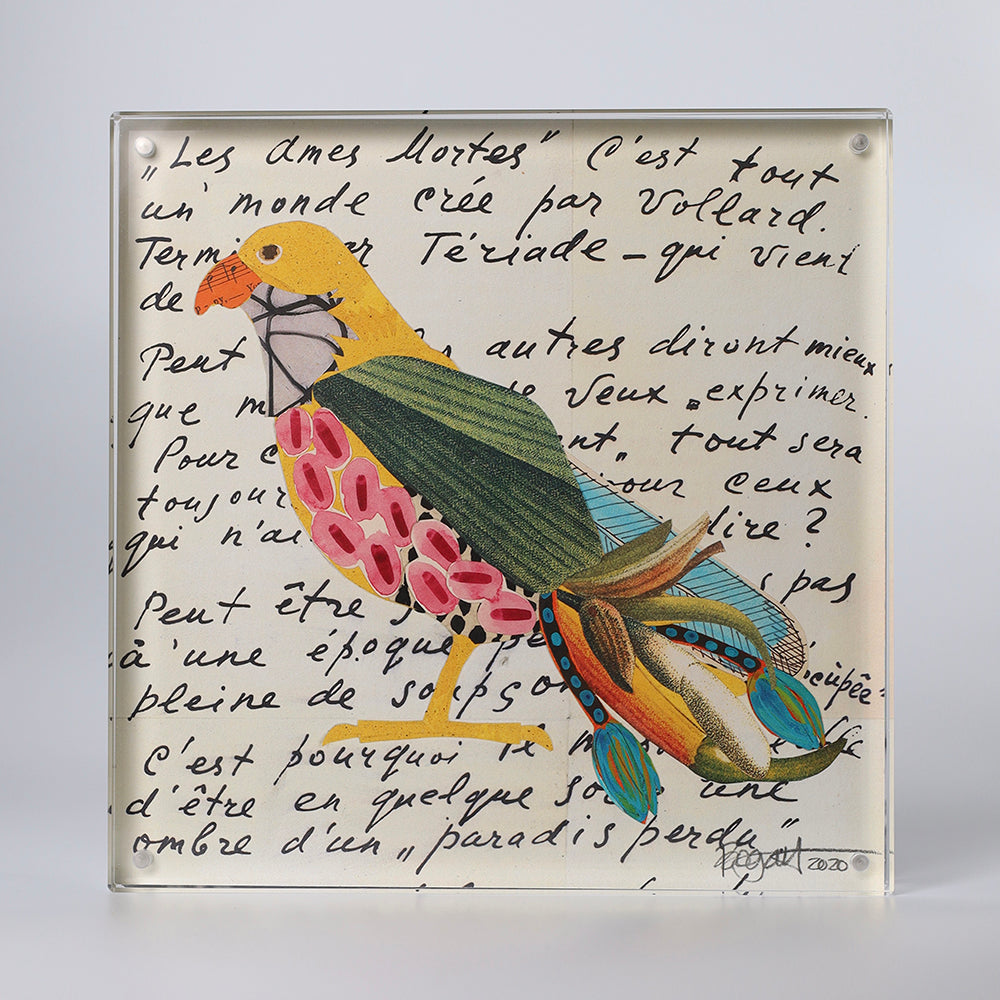 „Les Ames Mortes" C'est tout
un monde crée par Vollard.
Term er Tériade - qui vient
de
Peut autres diront mieux
que m je veux exprimer.
Pour c nt„ tout sera
toujour pour ceux
qui n'ai lire ?
Peut être s pas
à une époque pe cupée"
pleine de soupç on
C'est pourquoi le
d'être en quelque so une
ombre d'un „paradis perdu"
2020